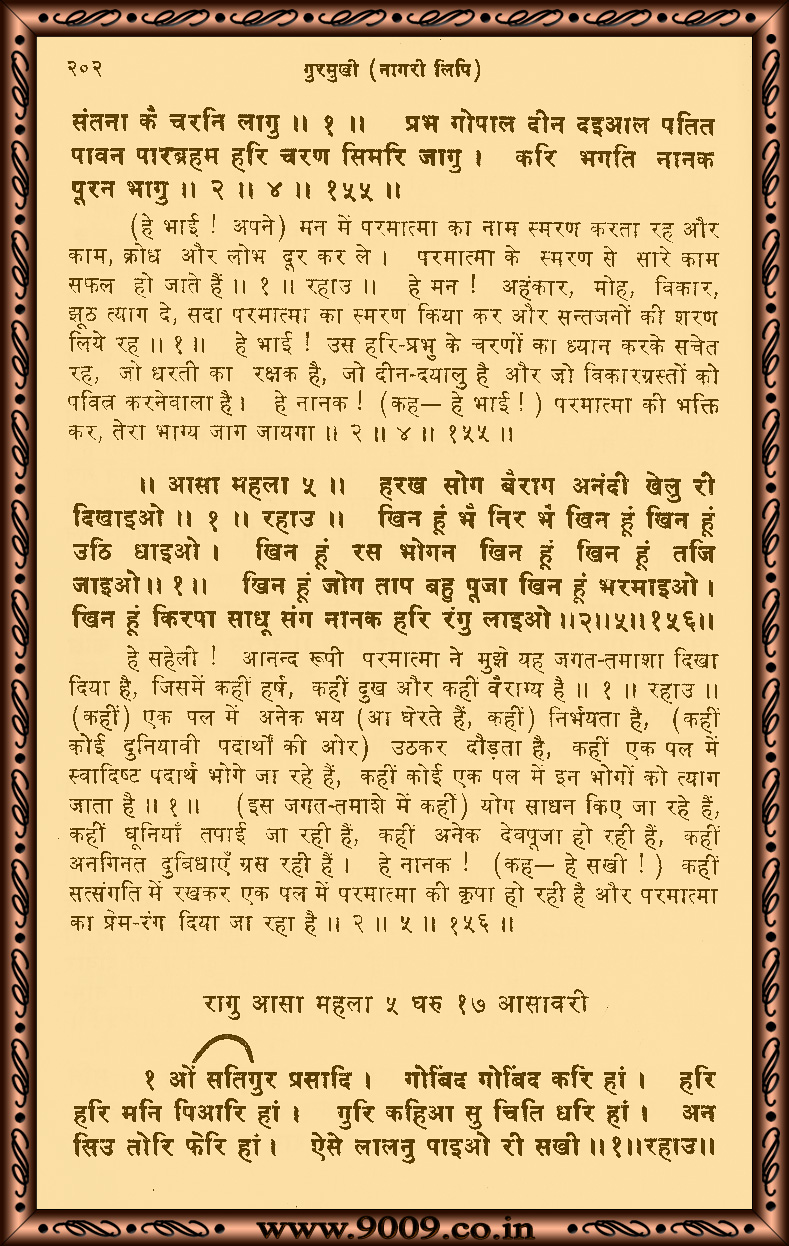 २०२ गुरमुखी (नागरी लिपि)
संतना कै चरनि लागु ॥ १ ॥ प्रभ गोपाल दीन दइआल पतित
पावन पारब्रहम हरि चरण सिमरि जागु । करि भगति नानक
पूरन भागु ॥ २ ॥ ४ ॥ १५५ ॥
(हे भाई ! अपने) मन में परमात्मा का नाम स्मरण करता रह और
काम, क्रोध और लोभ दूर कर ले । परमात्मा के स्मरण से सारे काम
सफल हो जाते हैं ॥ १ ॥ रहाउ ॥ हे मन ! अहंकार, मोह, विकार,
झूठ त्याग दे, सदा परमात्मा का स्मरण किया कर और सन्तजनों की शरण
लिये रह ॥ १ ॥ हे भाई ! उस हरि-प्रभु के चरणों का ध्यान करके सचेत
रह, जो धरती का रक्षक है, जो दीन-दयालु है और जो विकारग्रस्तों को
पवित्र करनेवाला है । हे नानक ! (कह— हे भाई ! ) परमात्मा की भक्ति
कर, तेरा भाग्य जाग जायगा ॥ २ ॥ ४ ॥ १५५ ॥
॥ आसा महला ५ ॥ हरख सोग बैराग अनंदी खेलु री
दिखाइओ ॥ १ ॥ रहाउ ॥ खिन हूं भै निर भै खिन हूं खिन हूं
उठि धाइओ । खिन हूं रस भोगन खिन हूं खिन हूं तजि
जाइओ ॥ १ ॥ खिन हूं जोग ताप बहु पूजा खिन हूं भरमाइओ ।
खिन हूं किरपा साधू संग नानक हरि रंगु लाइओ ॥२॥५॥१५६॥
हे सहेली ! आनन्द रूपी परमात्मा ने मुझे यह जगत-तमाशा दिखा
दिया है, जिसमें कहीं हर्ष, कहीं दुख और कहीं वैराग्य है ॥ १ ॥ रहाउ ॥
(कहीं) एक पल में अनेक भय (आ घेरते हैं, कहीं) निर्भयता है, (कहीं
कोई दुनियावी पदार्थों की ओर) उठकर दौड़ता है, कहीं एक पल में
स्वादिष्ट पदार्थ भोगे जा रहे हैं, कहीं कोई एक पल में इन भोगों को त्याग
जाता है ॥ १ ॥ (इस जगत-तमाशे में कहीं) योग साधन किए जा रहे हैं,
कहीं धूनियाँ तपाई जा रही हैं, कहीं अनेक देवपूजा हो रही हैं, कहीं
अनगिनत दुबिधाएँ ग्रस रही हैं । हे नानक ! (कह— हे सखी ! ) कहीं
सत्संगति में रखकर एक पल में परमात्मा की कृपा हो रही है और परमात्मा
का प्रेम-रंग दिया जा रहा है ॥ २ ॥ ५ ॥ १५६ ॥
रागु आसा महला ५ घरु १७ आसावरी
१ ओं सतिगुर प्रसादि । गोबिंद गोबिंद करि हां । हरि
हरि मनि पिआरि हां । गुरि कहिआ सु चिति धरि हां । अन
सिउ तोरि फेरि हां । ऐसे लालनु पाइओ री सखी ॥१॥रहाउ॥
www.9009.co.in